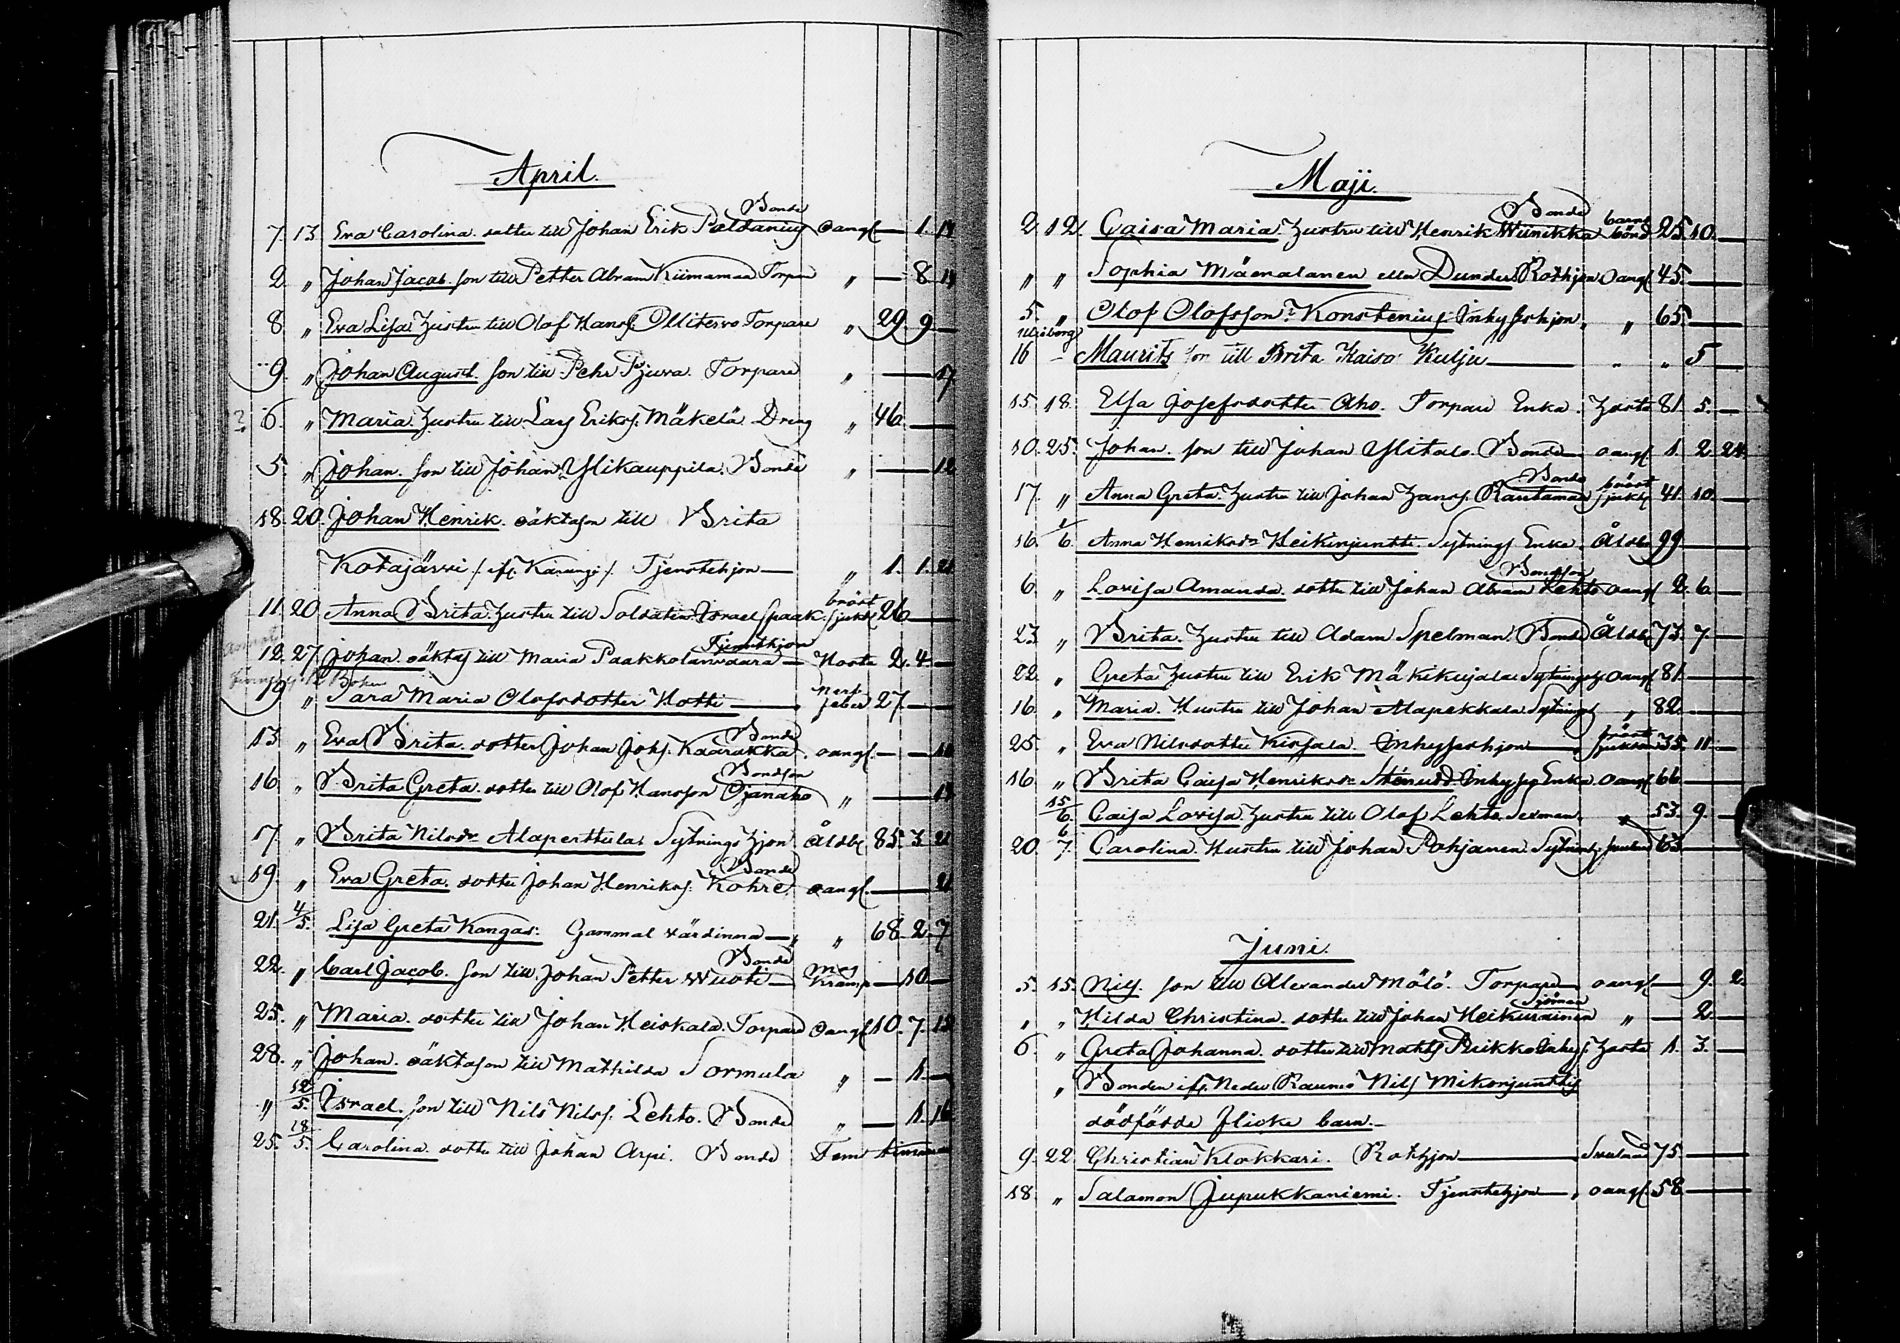 April.
Bonde
7. 13. Eva Carolina. dotter till Johan Erik Paldanius oangf. — 1. 14
2. „ Johan Jacob. son till Petter Abram Kiimamaa Torpare „ — 8. 14
8. „ Eva Lisa Hustru till Olof Hanss. Ollitervo Torpare „ 29. 9 —
9. „ Johan August. son till Pehr Pjuva. Torpare „ — 17
6. „ Maria. Hustru till Lars Eriks. Mäkelä Dreng „ 46. —
5. „ Johan. son till Johan Ylikauppila. Bonde „ — 12
18. 20. Johan Henrik. oäkta son till Brita
Kotajärvi /: ifr. Karungi :/ Tjenstehjon — „ 1. 1. 21
bröst
11. 20. Anna Brita. Hustru till Soldaten Israel Spaak. sjukd. 26 —
Tjensthjon
12. 27. Johan. oäkta s. till Maria Paakkolanvaara — Hosta 2. 4. —
19 „ Sara Maria Olofsdotter Hotti — nerf feber 27. —
Bonde
13. „ Eva Brita. dotter Johan Johs. Kaarakka. oangf. —
Bondson
16. „ Brita Greta. dotter till Olof Hansson Ojanaho „ — 14
17. „ Brita Nilsdr Alaperttula. Sytnings Hjon Åldd. 85. 3. 21
Bonde
19. „ Eva Greta. dotter Johan Henriks. Kohre. oangf. — 21
21. 4/5. Lisa Greta Kangas. Gammal värdinna — „ 68. 2. 7
Bonde
22. „ Carl Jacob. son till Johan Petter Wuoti — Mag Kramp — 10 —
25. „ Maria. dotter till Johan Heiskala. Torpare oangf. 10. 7. 12
28. „ Johan. oäkta son till Mathilda Sormula „ — 1. —
„ 12/5. Israel. son till Nils Nilss. Lehto. Bonde „ — 1. 16
25. 18/5. Carolina. dotter till Johan Arpi. Bonde Fem timmar
Maji.
Bonde barns
2. 12. Caisa Maria. Hustru till Henrik Wiinikka börd 25. 10. —
„ „ Sophia Mäenalanen eller Dunder Rothjon oangf. 45. —
5. „ Olof Olofsson Konstenius Inhyseshjon „ 65. —
Uleåborg
16 — Maurits son till Brita Kaisa Kulju — „ „ 5 —
15. 18. Elsa Josefsdotter Aho. Torpare Enka. Hosta 81. 5. —
10. 25. Johan. son till Johan Ylitalo. Bonde — oangf. 1. 2. 24.
Bonde bröst
17. „ Anna Greta. Hustru till Johan Hanss. Rautamaa sjukd. 41. 10. —
16. 1/6. Anna Henriksdr Heikinjuntti. Sytnings Enka. Åldd. 99 —
Bondson
6. „ Lovisa Amanda. dotter till Johan Abram Lehto oangf. 2. 6. —
23. „ Brita. Hustru till Adam Spelman. Bonde Åldd. 73. 7 —
22. „ Greta Hustru till Erik Mäkikujala. Sytningshj. oangf. 81. —
16. „ Maria. Hustru till Johan Alapekkala. Sytningshj. „ 82. —
bröst
25. „ Eva Nilsdotter Kirjala. Inhyseshjon — sjukdom 35. 11. —
16. „ Brita Caisa Henriksdr Inhyses Enka. oangf. 66 —
15/6. Caisa Lovisa. Hustru till Olof Lehto Sexman. „ 53. 9. —
20. 6/7. Carolina. Hustru till Johan Pohjanen. Sytningshj. 63 —
Juni.
5. 15. Nils. son till Alexander Mölö. Torpare — oangf. — 9. 2.
Sjöman
„ „ Hilda Christina. dotter till Johan Heikurainen „ — 2. —
6. „ Greta Johanna. dotter till Matts Peikko Inhys. Hosta 1. 3. —
„ Bonden ifr. Neder Raumo Nils Mikonjunttis
dödfödde flicke barn. —
9. 22. Christian Klokkari. Rothjon — Svulnad 75. —
18. „ Salamon Jupukkaniemi. Tjenstehjon — oangf. 58. —